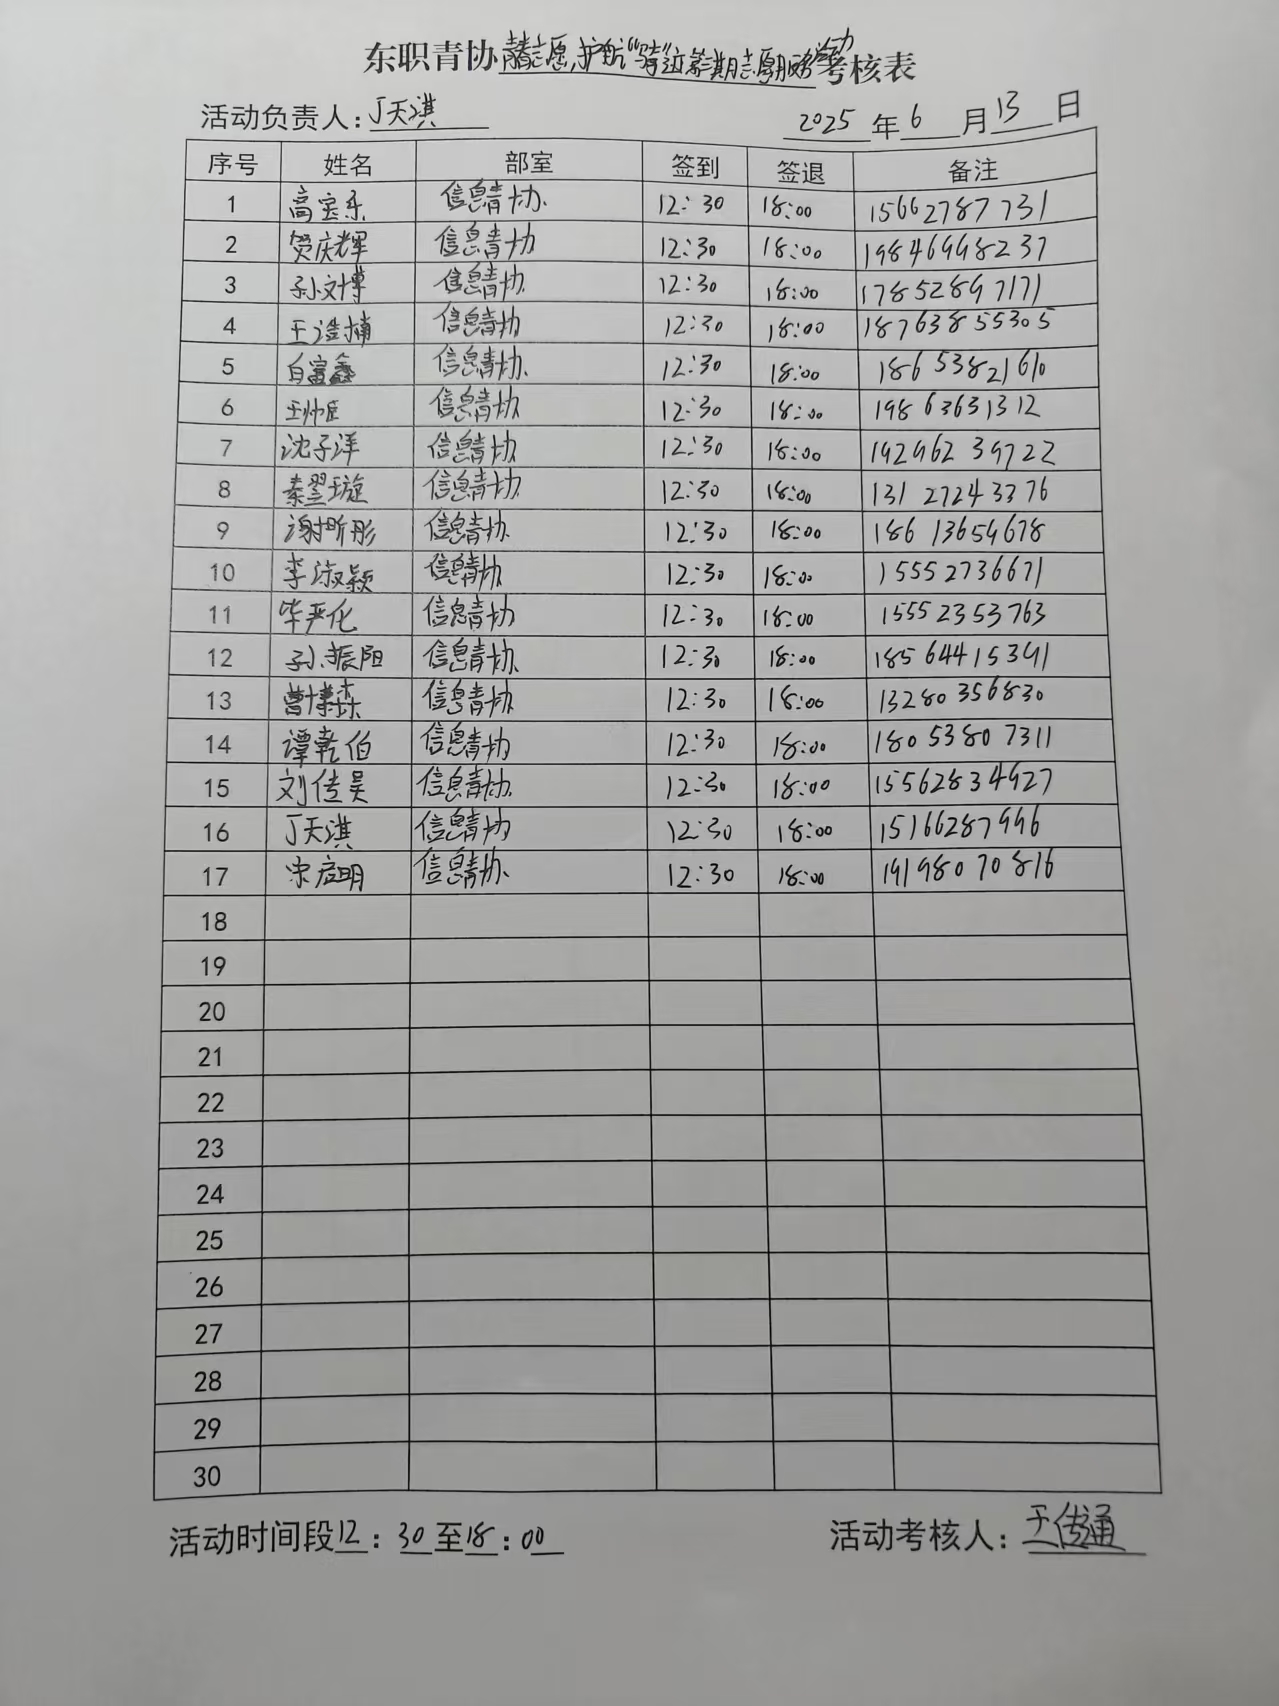 东职青协 青志愿,护航"骑"迹第二期志愿服务活动 考核表
活动负责人:丁天淇 2025年6月13日
序号 姓名 部室 签到 签退 备注
1 高宝乐 信息青协 12:30 18:00 15662787731
2 贺庆辉 信息青协 12:30 18:00 19846998237
3 孙文博 信息青协 12:30 18:00 17852897171
4 王浩楠 信息青协 12:30 18:00 18763855305
5 白富鑫 信息青协 12:30 18:00 18653821610
6 王帅臣 信息青协 12:30 18:00 19863631312
7 沈子洋 信息青协 12:30 18:00 19296239722
8 秦翌璇 信息青协 12:30 18:00 13127243376
9 谢昕彤 信息青协 12:30 18:00 18613654678
10 李淑颖 信息青协 12:30 18:00 15552736671
11 毕严化 信息青协 12:30 18:00 15552353763
12 孙振阳 信息青协 12:30 18:00 18564415391
13 曹博森 信息青协 12:30 18:00 13280356830
14 谭乾伯 信息青协 12:30 18:00 18053807311
15 刘传昊 信息青协 12:30 18:00 15562834927
16 丁天淇 信息青协 12:30 18:00 15166287996
17 宋启明 信息青协 12:30 18:00 19198070816
18
19
20
21
22
23
24
25
26
27
28
29
30
活动时间段12:30至18:00 活动考核人:王传通